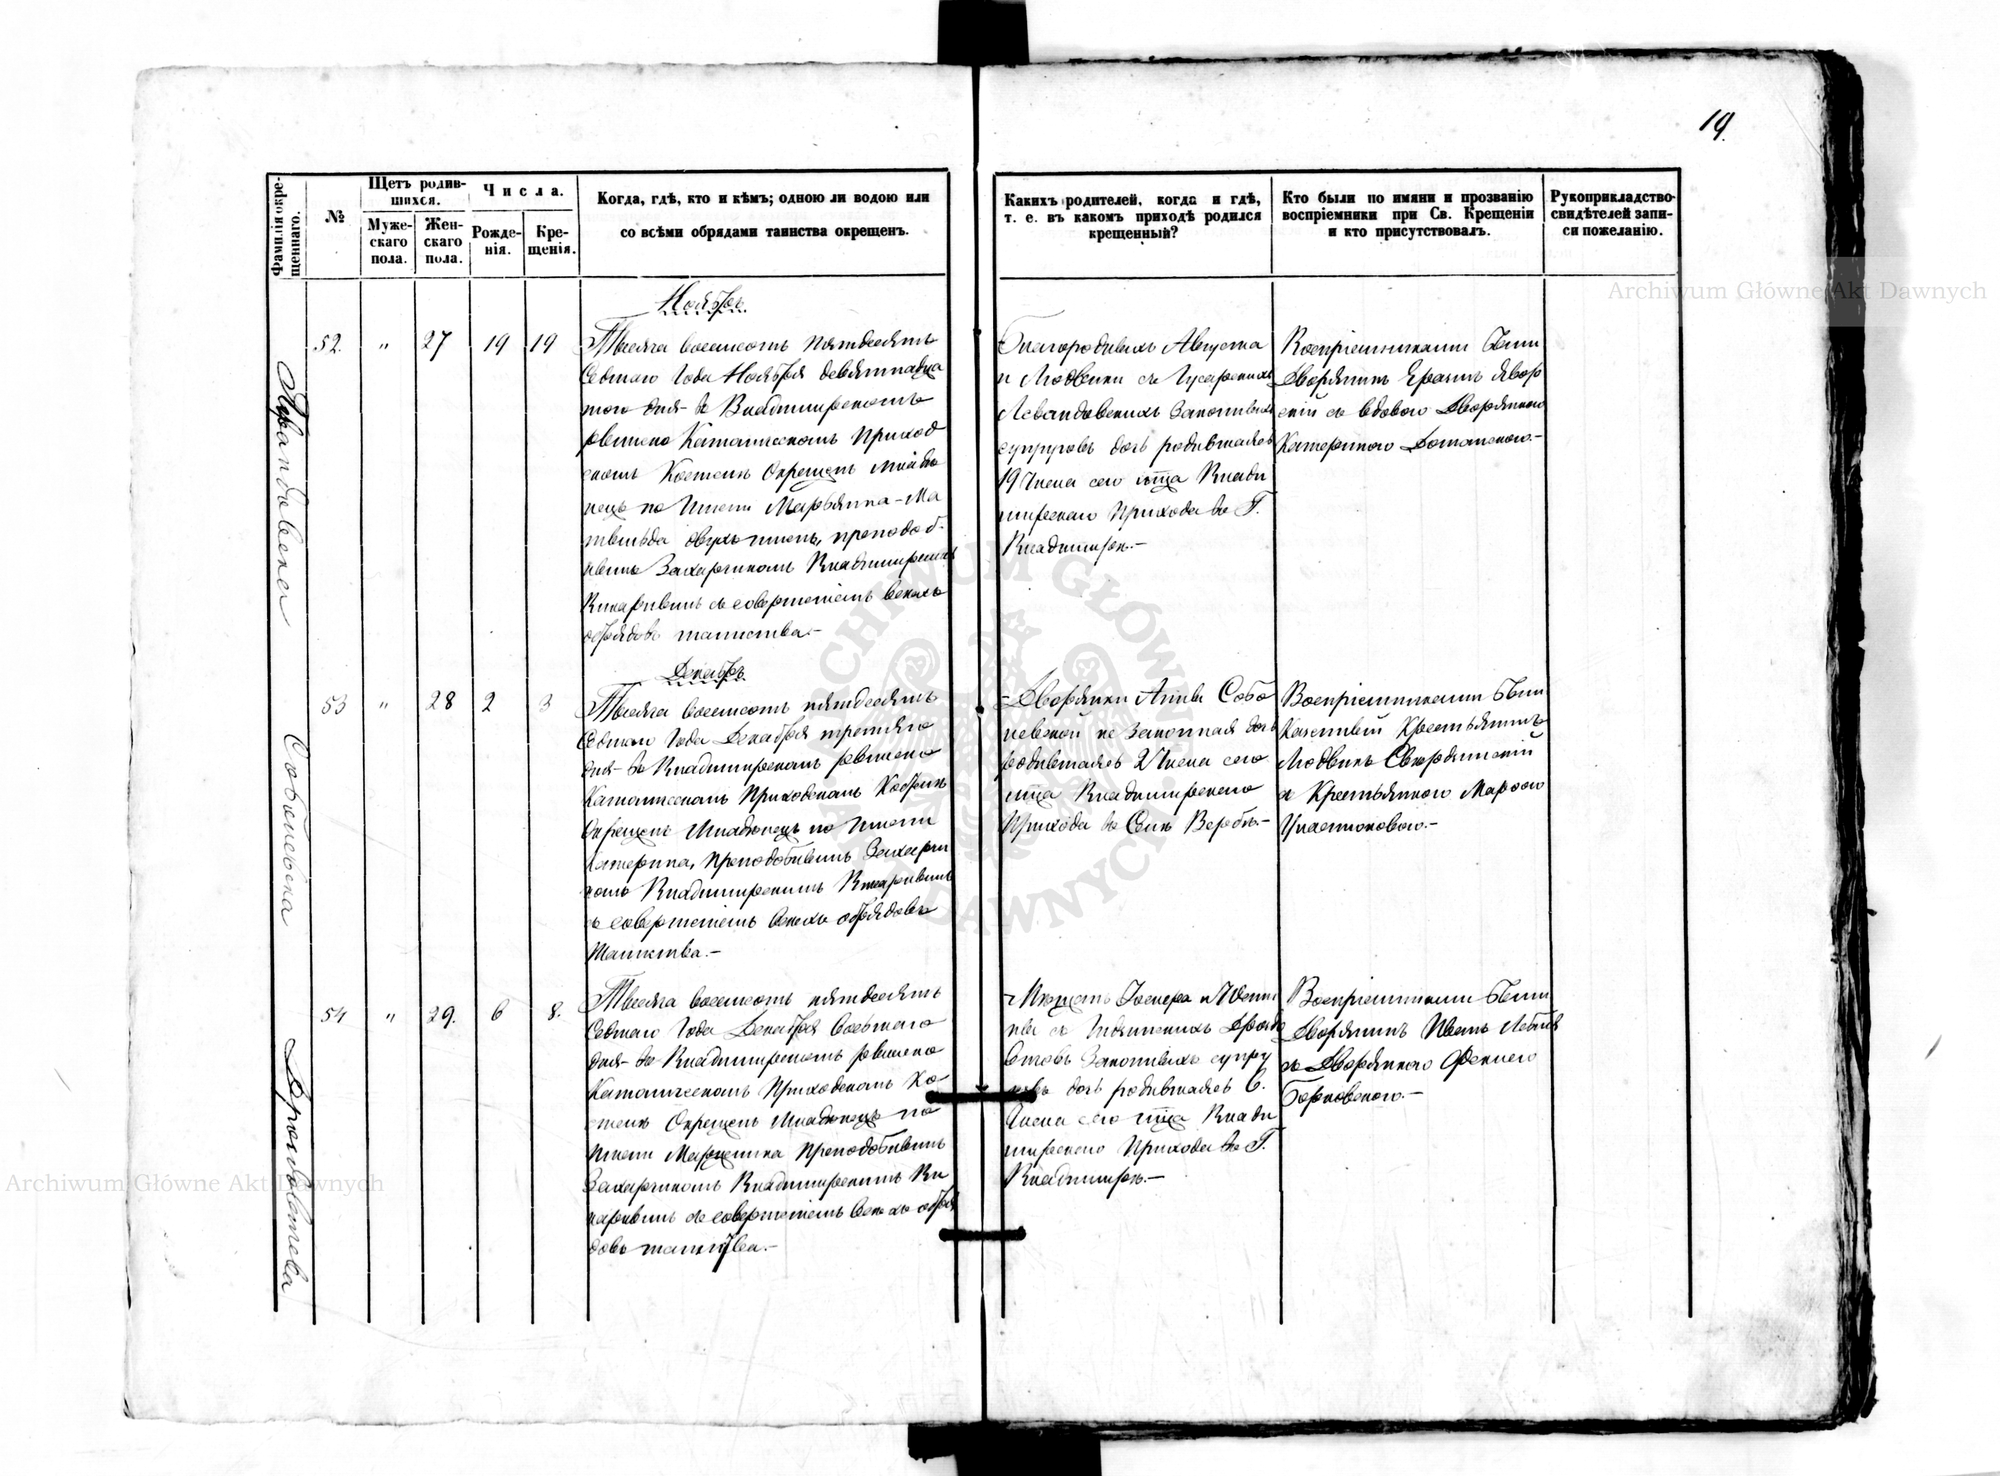 19.
Фамилія окре-
щеннаго.
№
Щетъ родив-
шихся.
Муже-
скаго
пола.
Жен-
скаго
пола.
Числа.
Рожде-
нія.
Кре-
щенія.
Когда, гдѣ, кто и кѣмъ; одною ли водою или
со всѣми обрядами таинства окрещенъ.
Какихъ родителей, когда и гдѣ,
т. е. въ какомъ приходѣ родился
крещенный?
Кто были по имяни и прозванію
воспріемники при Св. Крещеніи
и кто присутствовалъ.
Рукоприкладство
свидѣтелей запи-
си пожеланію.
Ноябрь
52. " 27 19 19
Тысяча восемсотъ пятдесятъ
Седмаго Года Ноября девятнадца
того дня въ Владимирскомъ
римско Католическомъ Приход
скомъ Костелѣ Окрещенъ младе
нецъ по Имени Марьянна-Ма
тильда двухъ именъ, преподоб-
нымъ Захаріикомъ Владимирскимъ
Викаріимъ съ совершеніемъ всехъ
обрядовъ таинства.-
Благородныхъ Августа
и Людвики съ
Левандовскихъ Законныхъ
супруговъ дочь родившаяся
19 Числа сего мца Влади
мирскаго Прихода въ Г.
Владимирѣ.-
Воспріемниками были
Дворянинъ
скій съ вдовою Дворянкою
Катериною
Декабрь
53 " 28 2 3
Соболевска
Тысяча восемсотъ пятдесятъ
Седмаго Года Декабря третяго
дня въ Владимирскомъ римско
Католическомъ Приходскомъ Костелѣ
Окрещенъ Младенецъ по Имени
Катерина, Преподобнымъ Захаріи
комъ Владимирскимъ Викаріимъ
съ совершеніемъ всехъ обрядовъ
Таинства.-
Дворянки Анны Собо
левской не Законная дочь
родившаяся 2 Числа сего
мца Владимирскаго
Прихода въ Селѣ Вербѣ.-
Воспріемниками были
Казенный Крестьянинъ
Людвикъ
и Крестьянкою
54 " 29. 6 8.
Тысяча восемсотъ пятдесятъ
Седмаго Года Декабря Восьмаго
дня въ Владимирскомъ римско
Католическомъ Приходскомъ Ко-
стелѣ Окрещенъ Младенецъ по
Имени Марцелина Преподобнымъ
Захаріикомъ Владимирскимъ Ви
каріимъ съ совершеніемъ всехъ обря
довъ таинства.-
Мѣщанъ
Законныхъ супру
говъ дочь родившаяся 6.
Числа сего мца Влади
мирскаго Прихода въ Г.
Владимирѣ.-
Воспріемниками были
Дворянинъ Иванъ
съ Дворянкою
Archiwum Główne Akt Dawnych
Archiwum Główne Akt Dawnych
ARCHIWUM GŁÓWNE AKT DAWNYCH